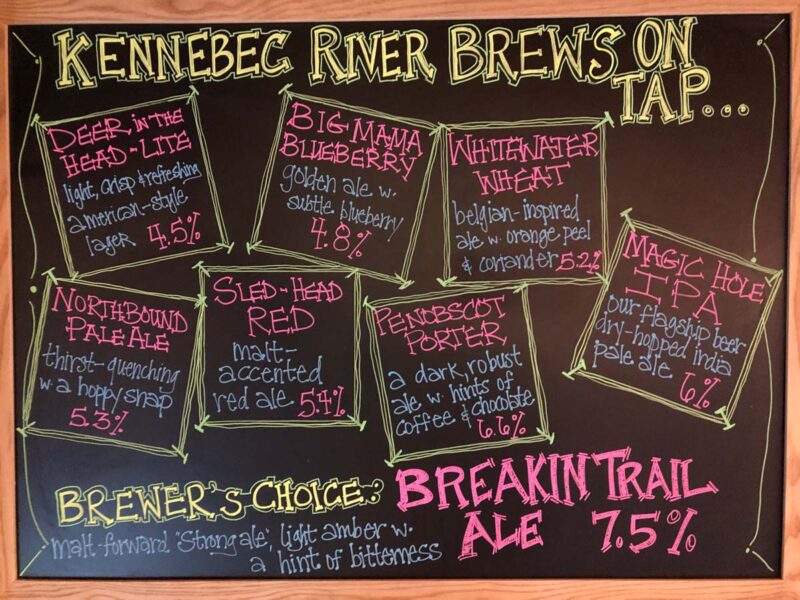 KENNEBEC RIVER BREWS ON
TAP...
DEER IN THE
HEAD-LITE
light, crisp & refreshing
american-style
lager 4.5%
BIG MAMA
BLUEBERRY
golden ale w.
subtle blueberry
4.8%
WHITEWATER
WHEAT
belgian-inspired
ale w. orange peel
& coriander 5.2%
MAGIC HOLE
IPA
our flagship beer
dry-hopped india
pale ale 6%
NORTHBOUND
PALE ALE
thirst-quenching
w. a hoppy snap
5.3%
SLED-HEAD
RED
malt-
accented
red ale 5.4%
PENOBSCOT
PORTER
a dark, robust
ale w. hints of
coffee & chocolate
6.6%
BREWER'S CHOICE: BREAKIN TRAIL
ALE 7.5%
malt-forward "Strong ale", light amber w.
a hint of bitterness